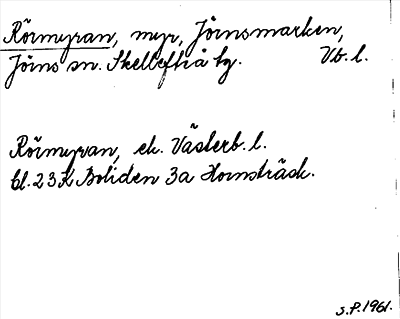 Rörmyran, myr, Jörnsmarken,
Jörns sn. Skellefteå tg. Vb. l.
Rörmyran, ek. Västerb. l.
bl. 23K Boliden 3a Hornsträsk.
S.P. 1961.